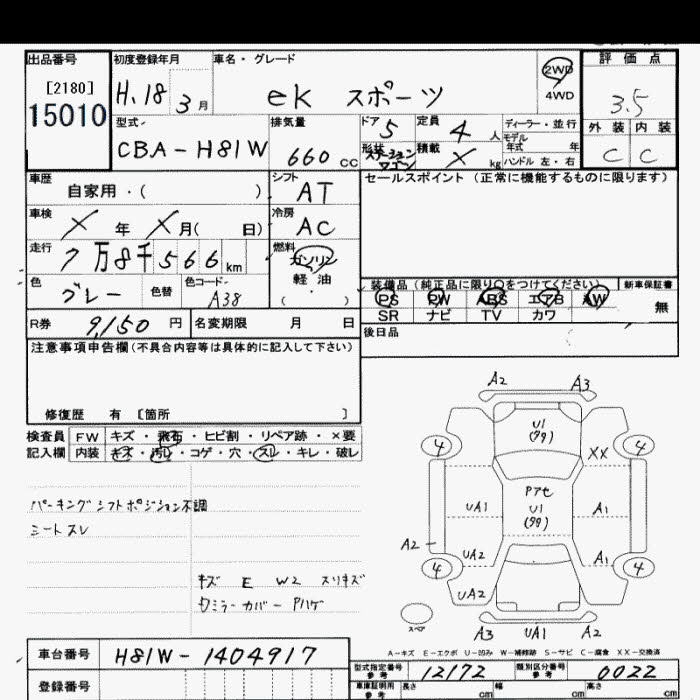 出品番号
[2180]
15010
初度登録年月
H.18 3月
車名・グレード
eK スポーツ
2WD
4WD
評価点
3.5
外装 内装
C C
型式
CBA-H81W
排気量
660 cc
ドア 5
定員 4 人
形状 ステーションワゴン
積載 × kg
ディーラー・並行
モデル年式 年
ハンドル 左・右
車歴
自家用・( )
シフト AT
セールスポイント (正常に機能するものに限ります)
車検 × 年 × 月( 日)
冷房 AC
走行 7万8千566km
燃料 ガソリン
軽油
( )
色 グレー 色替 色コード A38
装備品(純正品に限り○をつけてください) 新車保証書
PS PW ABS エアB AW 無
SR ナビ TV カワ
R券 9,150 円 名変期限 月 日
後日品
注意事項申告欄(不具合内容等は具体的に記入して下さい)
修復歴 有 [箇所 ]
検査員記入欄
FW キズ・飛石・ヒビ割・リペア跡・×要
内装 キズ・汚レ・コゲ・穴・スレ・キレ・破レ
パーキングシフトポジション不調
シートスレ
キズ E W2 スリキズ
ウミラーカバーPハゲ
A2 A3
U1
(99)
4 4
XX
Pアセ
U1
(99)
UA1 A1
A2 UA2 A1
4 4
UA2
スペア
A3 UA1 A2
A-キズ E-エクボ U-凹み W-補修跡 S-サビ C-腐食 XX-交換済
車台番号 H81W-1404917
型式指定番号 参考 12172 類別区分番号 参考 0022
登録番号
車庫証明用 参考 長さ cm 幅 cm 高さ cm